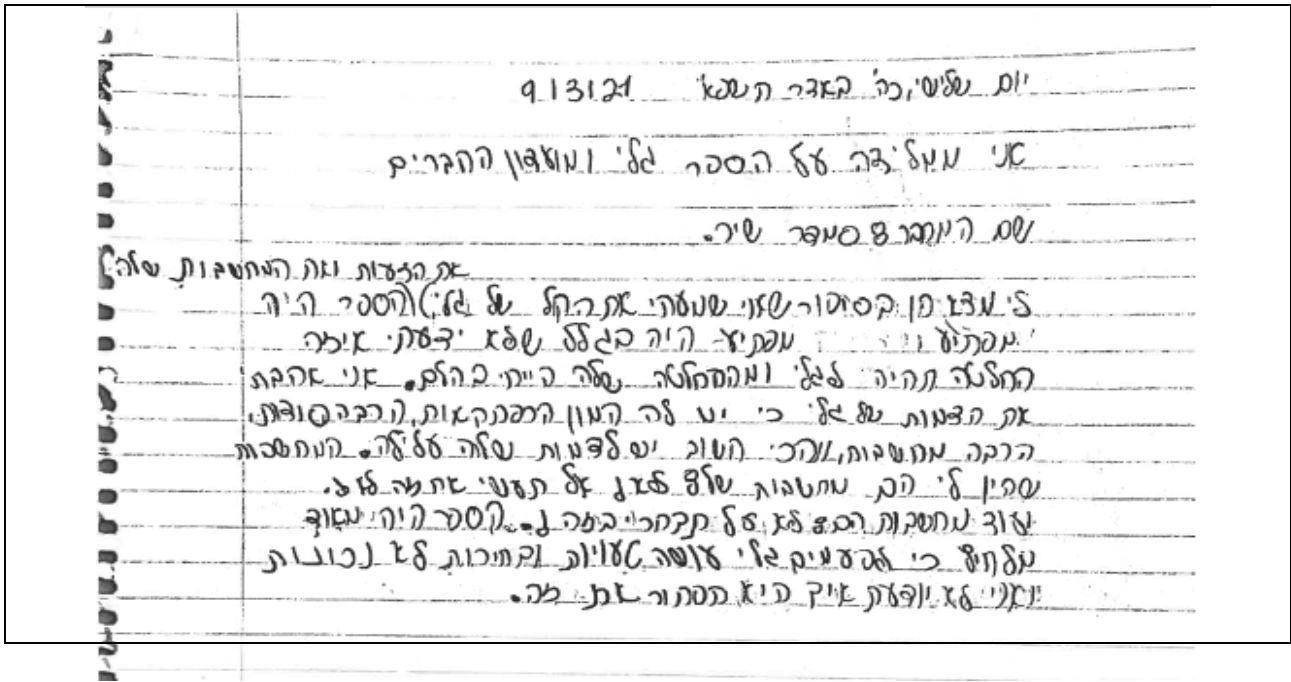 יום שלישי, כה' באדר תשפא' 9.3.21
אני ממליצה על הספר גלי ומועדון החברים
שם המחבר: סמדר שיר.
את הדעות ואת המחשבות שלה
מצא חן בסיפור שאני שמעתי את הקול של גלי) הספר היה
מפתיע מפתיע- היה בגלל שלא ידעתי איזה
החלטה תהיה לגלי ומההחלטה שלה הייתי בהלם. אני אהבת
את הדמות של גלי כי יש לה המון הרפתקאות, הרבה סודות,
הרבה מחשבות, והכי חשוב יש לדמות שלה עלילה. המחשבות
שהין לי הם מחשבות לא אל תעשי את זה לא
ועוד מחשבות הם: לא על תבחרי בזה הספר היה מאוד
מלחיץ כי לפעמים גלי עושה טעויות ובחירות לא נכונות
ואני לא יודעת איך היא תפתור את זה.